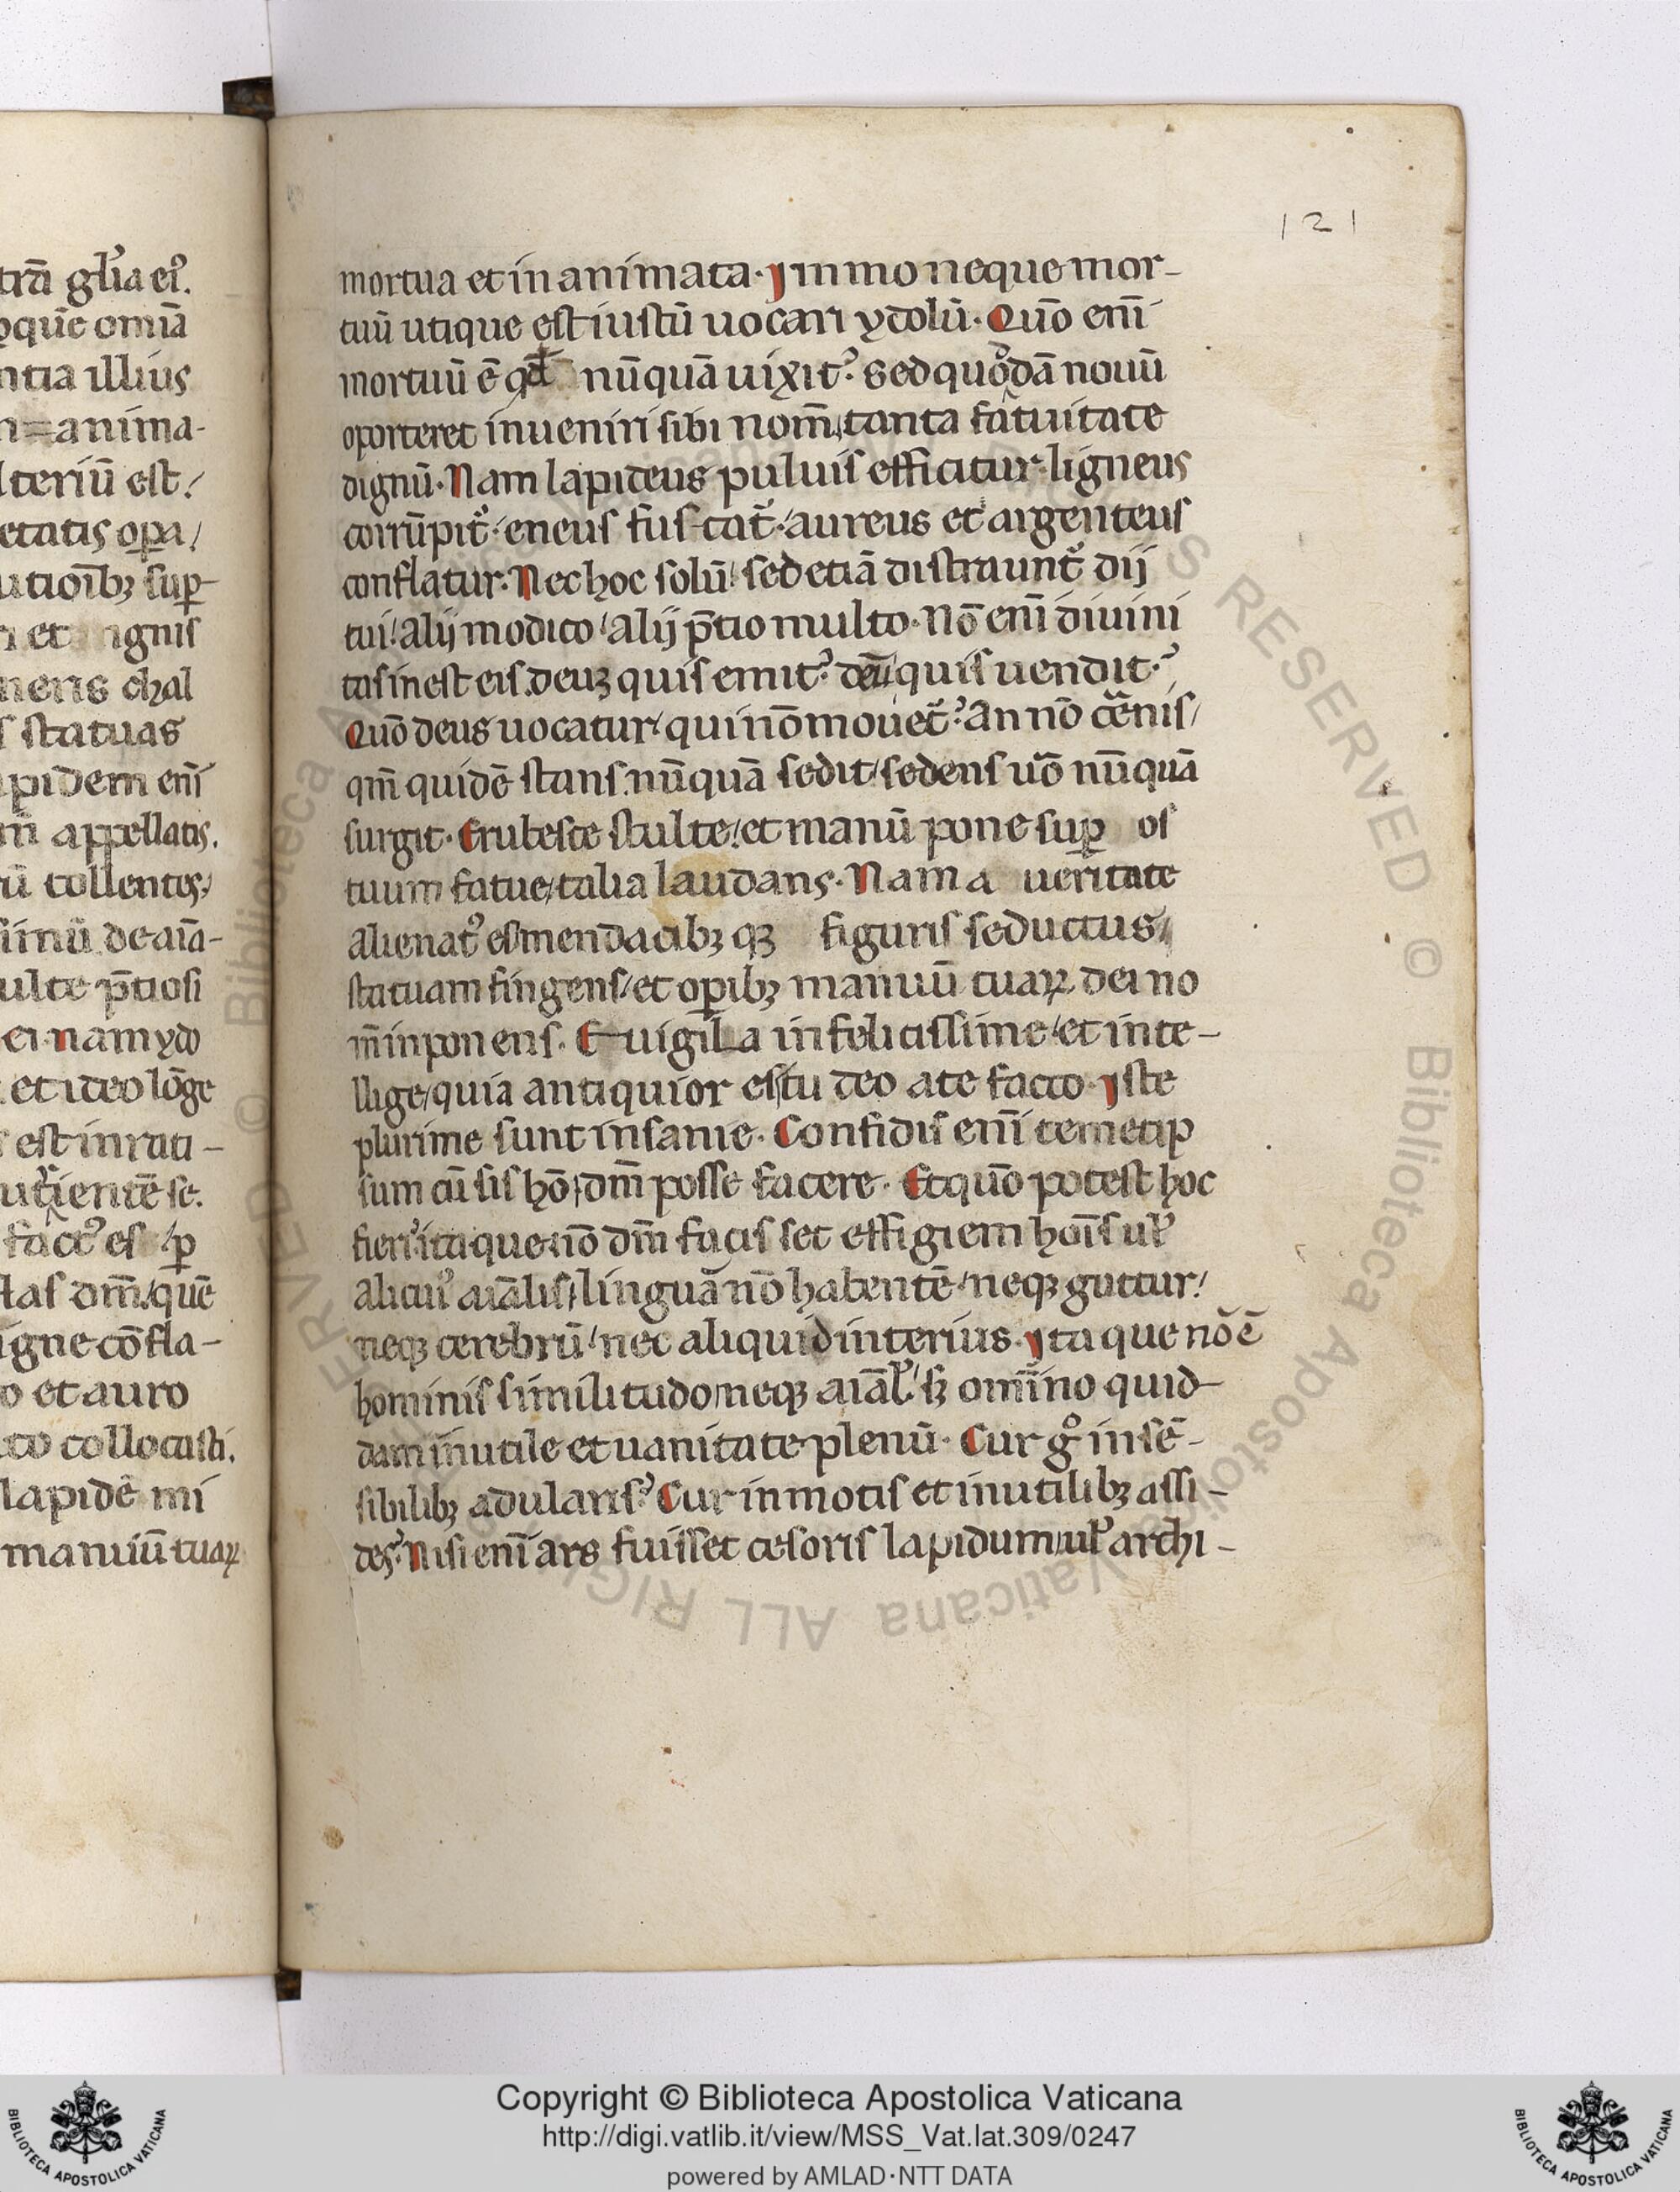 trā gl'ia ei᾽.
oque omīa
ntia illius
n=anima-
lteriū est/
etatis opa/
utioībꝫ sup-
et ignis
neris chal
statuas
apidem enī
m̄ appellatis.
ū tollentes/
simū de aīa-
ulte p̄tiosi
ei namydo
et ideo lōge
est inrati-
utientē se.
fact᾽ es / ꝑ
las dm̄/quē
igne cōfla-
o et auro
to collocasti.
lapidē mi
manuū tuaꝝ
121
mortua et inanimata. Immo neque mor-
tuū utique est iustū uocari ydolū. Quō enī
mortuū ē qd̄ nūquā uixit? Sed quodā nouū
oporteret inueniri sibi nom̄ tanta fatuitate
dignū. Nam lapideus puluis efficitur ligneus
corrūpit᾽/ eneus fuscat᾽/ aureus et argenteus
conflatur. Nec hoc solū/ sed etiā distraunt᾽ dij
tui/ alij modico/ alij p̄tio multo. Nō enī diuini
tas inest eis. deuꝫ quis emit? deū quis uendit?
Quō deus uocatur/ qui nō mouet᾽? An nō c̄nis/
qm̄ quidē stans nūquā sedit/ sedens uō nūquā
surgit. Erubesce stulte/ et manū pone suꝑ os
tuum fatue/ talia laudans. Nam a ueritate
alienat᾽ es mendacibꝫ qꝫ figuris seductus/
statuam fingens/ et opibꝫ manuū tuaꝝ dei no
m̄ inponens. Euigila infelicissime/ et inte-
llige/ quia antiquior es tu deo a te facto. Iste
plurime sunt insanie. Confidis enī temetip
sum cū sis hō/ dm̄ posse facere. Et quō potest hoc
fieri/ itaque nō dm̄ facis set effigiem hoīs ul᾽
alicui᾽ aīalis/ linguā nō habentē/ neqꝫ guttur/
neqꝫ cerebrū/ nec aliquid interius. Itaque nō ē
hominis similitudo/ neqꝫ aīal᾽/ sꝫ omīno quid-
dam inutile et uanitate plenū. Cur gͦ insē-
sibilibꝫ adularis? Cur inmotis et inutilibꝫ assi-
des? Nisi enī ars fuisset cesoris lapidum/ ul᾽ archi-
Copyright © Biblioteca Apostolica Vaticana
http://digi.vatlib.it/view/MSS_Vat.lat.309/0247
powered by AMLAD·NTT DATA
BIBLIOTECA APOSTOLICA VATICANA
BIBLIOTECA APOSTOLICA VATICANA